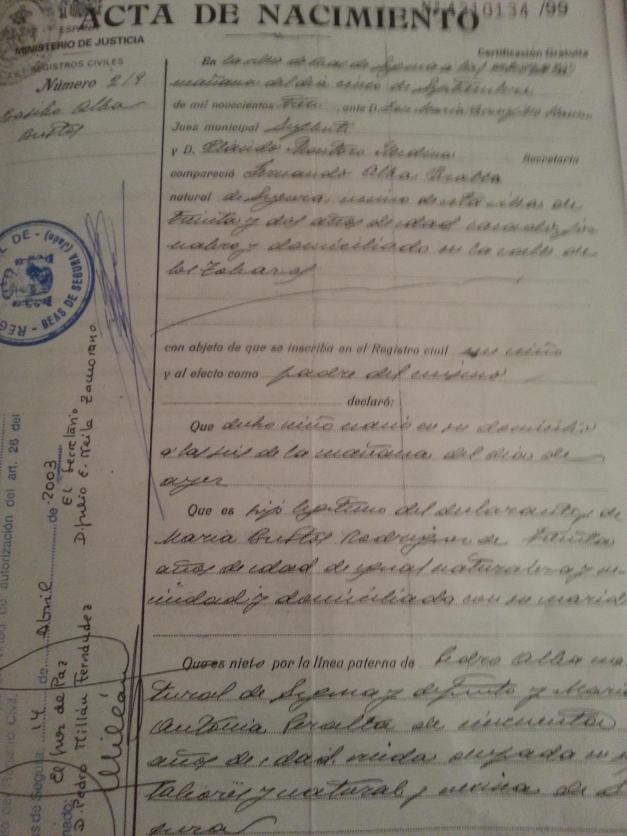 ACTA DE NACIMIENTO
4210134 /99
ESPAÑA
MINISTERIO DE JUSTICIA
REGISTROS CIVILES
Certificación Gratuita
Número 219
Alba
Bustos
En la villa de Beas de Segura a las
mañana del día cinco de Septiembre
de mil novecientos tres, ante D. José María
Juez municipal Suplente
y D. Claudio Montoro Medina Secretario
compareció Fernando Alba Peralta
natural de Segura, vecino de esta villa de
treinta y dos años de edad casado, jor
nalero, y domiciliado en la calle de
los
con objeto de que se inscriba en el Registro civil un niño
y al efecto como padre del mismo
declaró:
Que dicho niño nació en su domicilio
a las seis de la mañana del día de
ayer
Que es hijo legítimo del declarante y de
Maria Bustos Rodriguez de treinta
años de edad de igual naturaleza y ve
cindad y domiciliada con su marido
Que es nieto por la línea paterna de Pedro Alba na
tural de Segura y difunto y Maria
Antonia Peralta de cincuenta
años de edad, viuda ocupada en su
labores y natural y vecina de Se
gura
DE - (Jaén)
REG - BEAS DE SEGURA
de autorización del art. 26 del
Registro Civil.
as de Segura, 14 de Abril de 2003
El Juez de Paz
El Secretario
D. Pedro Millán Fernández
D. Julio E. Neila Zamorano
Millán